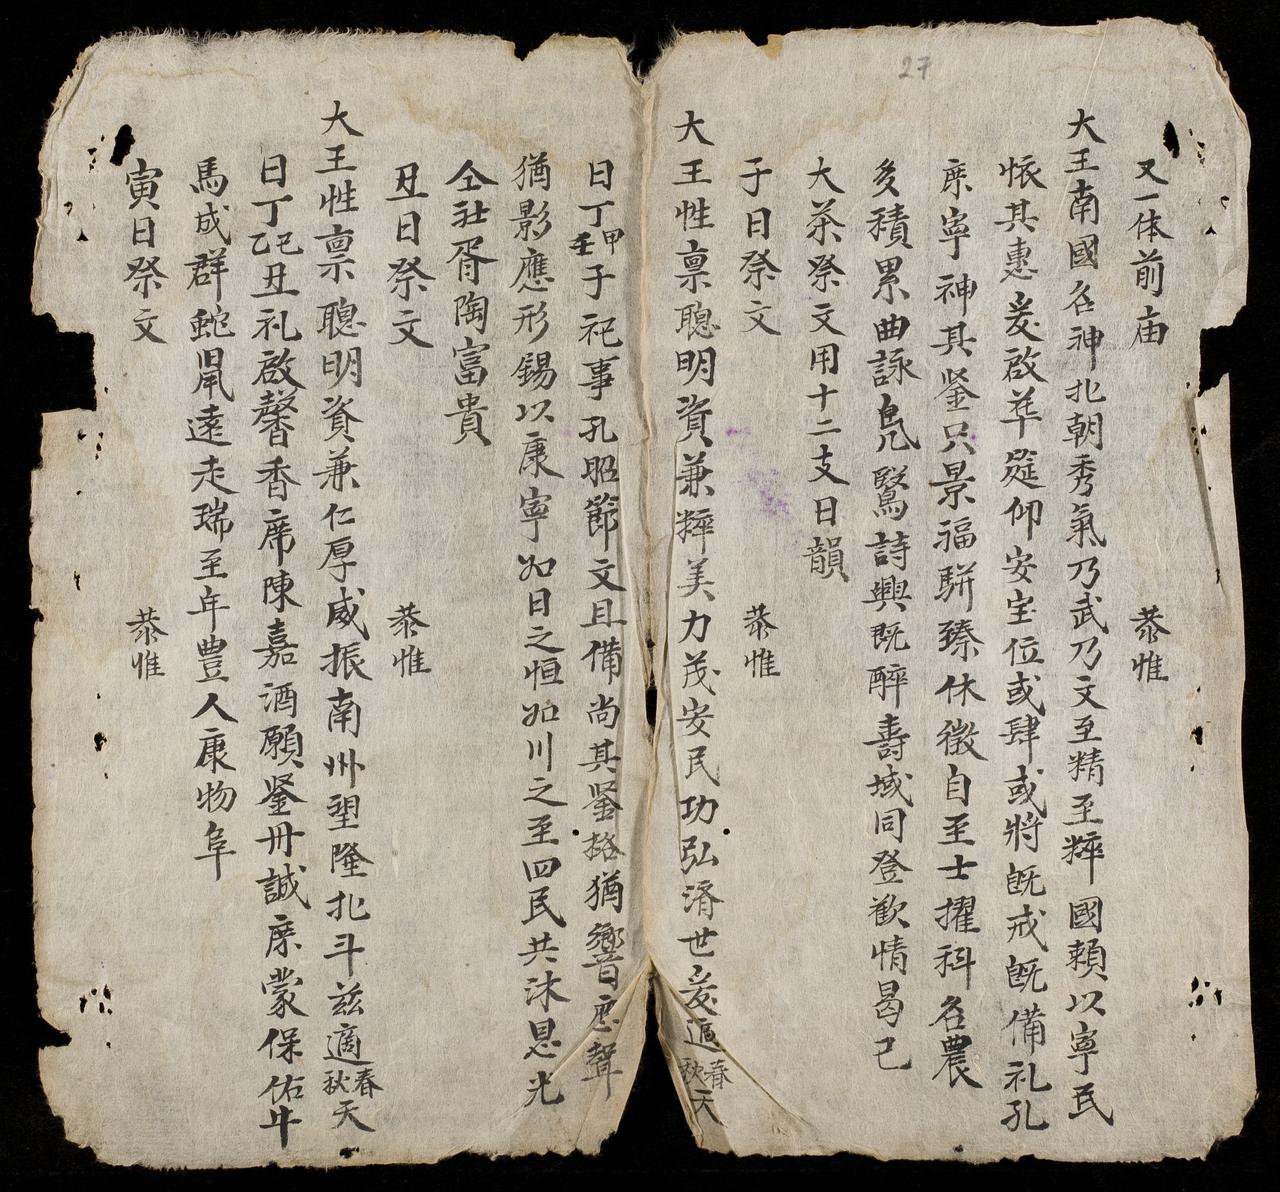 27
又一体前庙 恭惟
大王南國名神北朝秀氣乃武乃文至精至粹國賴以寧民
懷其惠爰啟华筵仰安宝位或肆或將既戒既備礼孔
庶寧神其鉴只景福駢臻休徵自至士擢科名農
多積累曲詠鳧鷖詩興既醉壽域同登歡情曷已
大茶祭文用十二支日韻
子日祭文 恭惟
大王性禀聰明資兼粹美力茂安民功弘濟世爰適春秋天
日丁甲壬子祀事孔昭節文且備尚其鉴格猶響应聲
猶影應形錫以康寧如日之恒如川之至四民共沐恩光
仝社胥陶富貴
丑日祭文 恭惟
大王性禀聰明資兼仁厚威振南州望隆北斗兹適春秋天
日丁己乙丑礼啟馨香席陳嘉酒願鉴丹誠庶蒙保佑牛
馬成群蛇鼠遠走瑞至年豊人康物阜
寅日祭文 恭惟